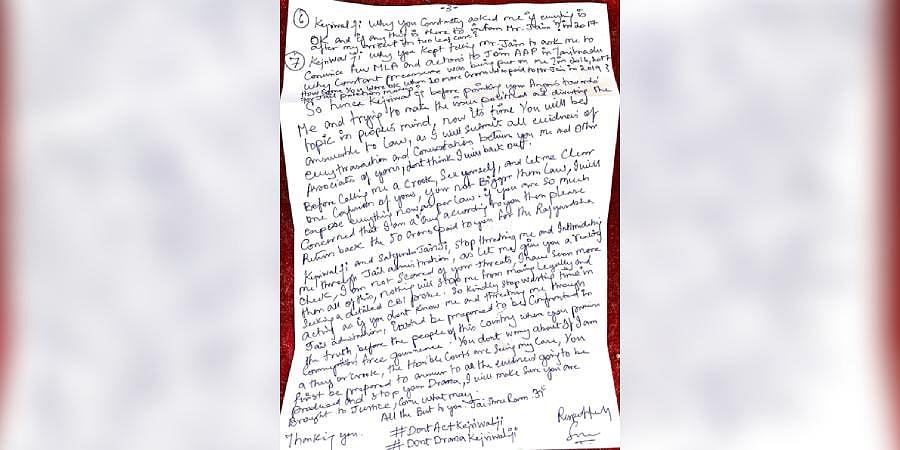 -3-
⑥ Kejriwal Ji why you Constantly asked me if everything is
OK and if any thing is there to inform Mr. Jain? in 2017
after my arrest in two leaf case?
⑦ Kejriwal Ji why you Kept telling Mr. Jain to ask me to
Convince few MLA and actors to Join AAP in Tamilnadu
why Constant pressure was being put on me in 2016, 2017
10 more Crores paid to Mr Jain in 2019?
for Jail protection money
So hence Kejriwal Ji before pointing your fingers towards
Me and trying to make the issue politicised and diverting the
topic in peoples mind, now its time You will be
answerable to Law, as I will submit all evidness of
every transaction and Conversation between you Me and Other
Associates of yours, dont think I will back out.
Before Calling me a Crook, See yourself, and let me Clear
one Confusion of yours, your not Bigger then Law, I will
expose everything now as per Law. if you are So, Much
Concerned that I am a thug according to you then please
Return back the 50 Crores paid to you for the Rajyasabha
Kejriwal Ji and Satyendar Jain Ji, stop threating me and Intimidating
me through Jail administration, as let me give you a reality
Check, I am not Scared of your threats, I have Seen more
then all of this, nothing will Stop me from moving Legally and
Seeking a detailed CBI probe. So kindly stop wasting time in
acting as if you dont Know me and threating me through
Jail adminstration, be prepared to be Confronted to
the truth before the people of this Country whom you promise
Corruption free governence. You dont worry about If I am
a thug or Crook, the Hon'ble Courts are Seeing my Case, You
first be prepared to answer to all the evidness going to be
produced and stop your Drama, I will make Sure you are
Brought to Justice, Come what may.
All the Best to you. Jai Shree Ram
Thanking you.
Respectfully
#DontActKejriwalji
#DontDramaKejriwalji